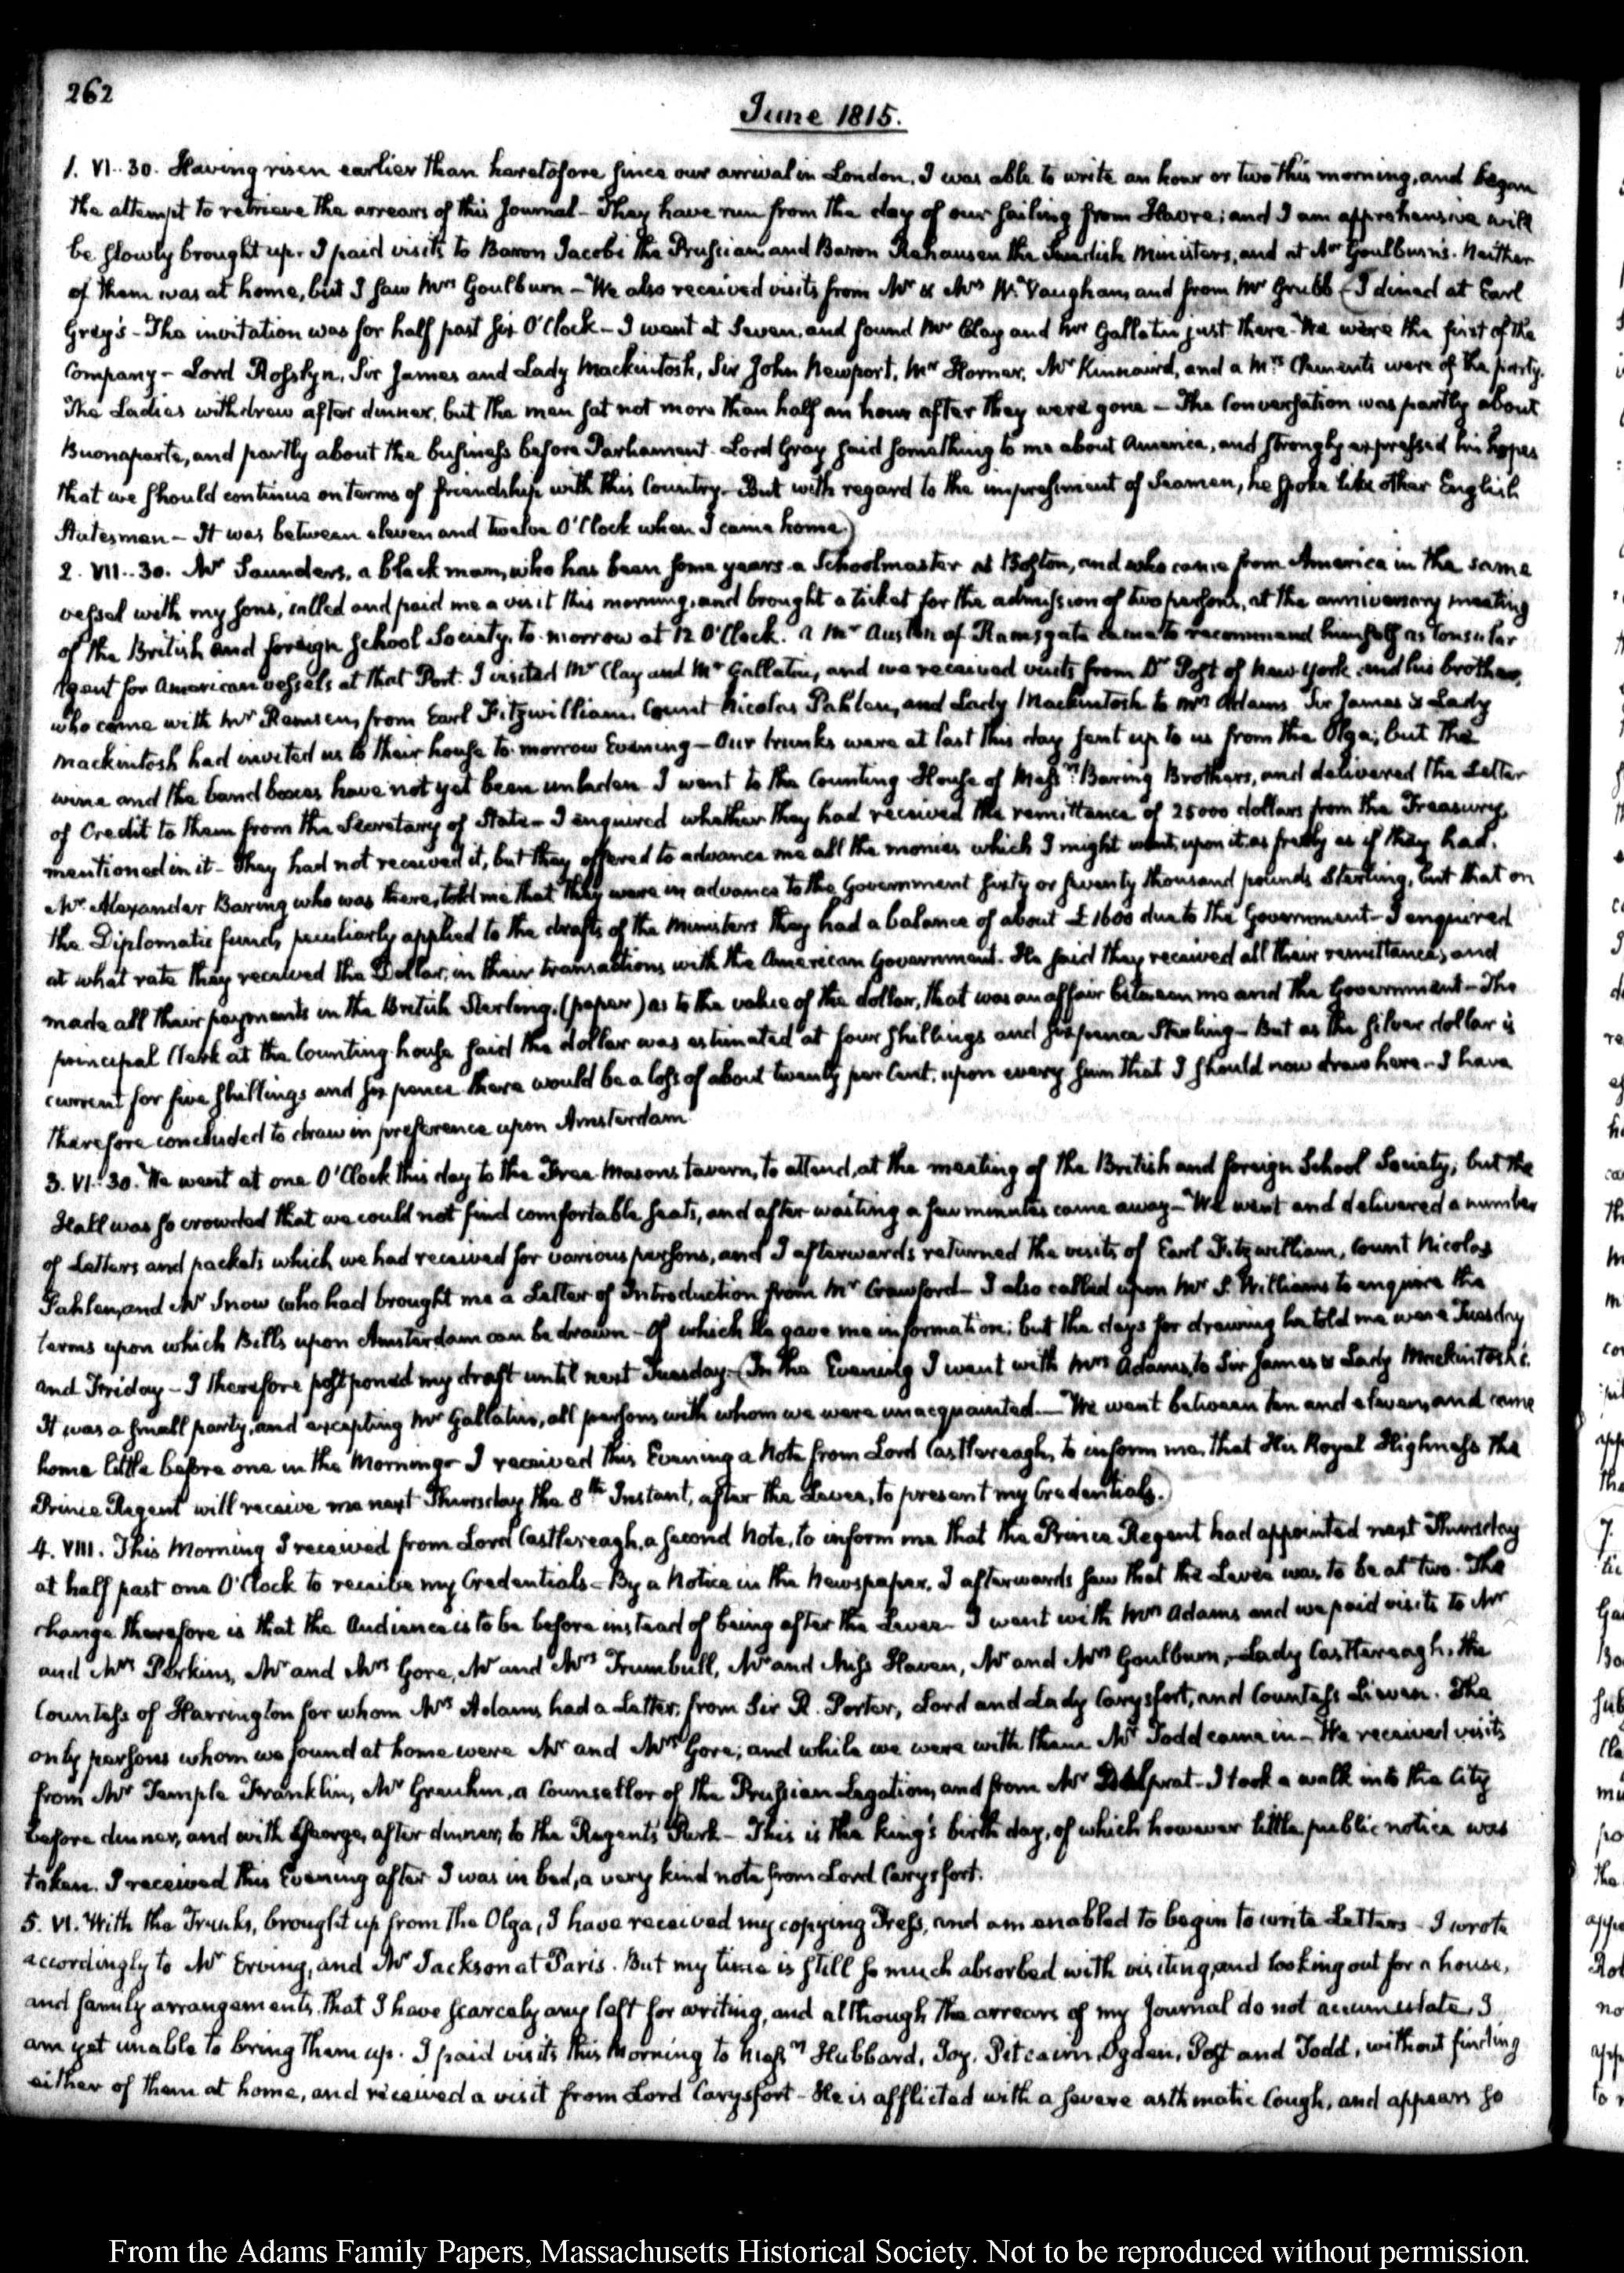 262
June 1815.
1. VI..30. Having risen earlier than heretofore since our arrival in London, I was able to write an hour or two this morning, and began
the attempt to retrieve the arrears of this Journal - They have run from the day of our sailing from Havre; and I am apprehensive will
be slowly brought up. I paid visits to Baron Jacobi the Prussian and Baron Rehausen the Swedish Ministers, and at Mr Goulburn's. Neither
of them was at home, but I saw Mrs Goulburn - We also received visits from Mr & Mrs W. Vaughan, and from Mr Grubb (I dined at Earl
Grey's - The invitation was for half past six O'Clock - I went at Seven, and found Mr Clay and Mr Gallatin just there - We were the first of the
Company - Lord Rosslyn, Sir James and Lady Mackintosh, Sir John Newport, Mr Horner, Mr Kinnaird, and a Mrs Clements were of the party.
The Ladies withdrew after dinner, but the men sat not more than half an hour after they were gone - The Conversation was partly about
Buonaparte, and partly about the business before Parliament. Lord Grey said something to me about America, and strongly expressed his hopes
that we should continue on terms of friendship with this Country - But with regard to the impressment of Seamen, he spoke like other English
Statesmen - It was between eleven and twelve O'Clock when I came home.)
2. VII..30. Mr Saunders, a black man, who has been some years a Schoolmaster at Boston, and who came from America in the same
vessel with my sons, called and paid me a visit this morning, and brought a ticket for the admission of two persons, at the anniversary meeting
of the British and foreign School Society, to-morrow at 12 O'Clock. A Mr Austen of Ramsgate came to recommend himself as Consular
Agent for American vessels at that Port. I visited Mr Clay and Mr Gallatin, and we received visits from Dr Post of New-York and his brother,
who came with Mr Remsen, from Earl Fitzwilliam, Count Nicolas Pahlen, and Lady Mackintosh to Mrs Adams. Sir James & Lady
Mackintosh had invited us to their house to-morrow Evening - Our trunks were at last this day sent up to us from the Olga; but the
wine and the band boxes have not yet been unladen. I went to the Counting House of Messrs Baring Brothers, and delivered the Letter
of Credit to them from the Secretary of State - I enquired whether they had received the remittance of 25000 dollars from the Treasury,
mentioned in it - They had not received it, but they offered to advance me all the monies which I might want, upon it, as freely as if they had.
Mr Alexander Baring who was there, told me that they were in advance to the Government sixty or seventy thousand pounds Sterling, but that on
the Diplomatic funds, peculiarly applied to the drafts of the Ministers they had a balance of about £1600 due to the Government - I enquired
at what rate they received the Dollar, in their transactions with the American Government. He said they received all their remittances, and
made all their payments in the British Sterling, (paper) as to the value of the dollar, that was an affair between me and the Government - The
principal Clerk at the Counting-house said the dollar was estimated at four shillings and six pence Sterling - But as the silver dollar is
current for five shillings and six pence there would be a loss of about twenty per Cent, upon every sum that I should now draw here - I have
therefore concluded to draw in preference upon Amsterdam
3. VI.30. We went at one O'Clock this day to the Free Masons tavern, to attend, at the meeting of the British and foreign School Society; but the
Hall was so crowded that we could not find comfortable seats, and after waiting a few minutes came away - We went and delivered a number
of Letters and packets which we had received for various persons, and I afterwards returned the visits of Earl Fitzwilliam, Count Nicolas
Pahlen, and Mr Snow who had brought me a Letter of Introduction from Mr Crawford - I also called upon Mr S. Williams to enquire the
terms upon which Bills upon Amsterdam can be drawn - Of which he gave me information; but the days for drawing he told me were Tuesday
and Friday - I therefore postponed my draft until next Tuesday - (In the Evening I went with Mrs Adams, to Sir James & Lady Mackintosh's.
It was a small party, and excepting Mr Gallatin, all persons with whom we were unacquainted - We went between ten and eleven, and came
home little before one in the Morning - I received this Evening a Note from Lord Castlereagh, to inform me, that His Royal Highness the
Prince Regent will receive me next Thursday the 8th Instant, after the Levee, to present my Credentials.)
4. VIII. This Morning I received from Lord Castlereagh, a second Note, to inform me that the Prince Regent had appointed next Thursday
at half past one O'Clock to receive my Credentials - By a Notice in the Newspaper, I afterwards saw that the Levee was to be at two. The
change therefore is that the Audience is to be before instead of being after the Levee - I went with Mrs Adams and we paid visits to Mr
and Mrs Perkins, Mr and Mrs Gore, Mr and Mrs Trumbull, Mr and Miss Haven, Mr and Mrs Goulburn, Lady Castlereagh, the
Countess of Harrington for whom Mrs Adams had a Letter, from Sir R. Porter, Lord and Lady Carysfort, and Countess Lieven. The
only persons whom we found at home were Mr and Mrs Gore; and while we were with them Mr Todd came in - We received visits
from Mr Temple Franklin, Mr Greuhm, a Counsellor of the Prussian Legation, and from Mr Delprat - I took a walk into the City
before dinner, and with George, after dinner, to the Regent's Park - This is the King's birth day, of which however little public notice was
taken. I received this Evening after I was in bed, a very kind note from Lord Carysfort.
5. VI. With the Trunks, brought up from the Olga, I have received my copying Press, and am enabled to begin to write Letters - I wrote
accordingly to Mr Erving, and Mr Jackson at Paris. But my time is still so much absorbed with visiting, and looking out for a house,
and family arrangements, that I have scarcely any left for writing, and although the arrears of my Journal do not accumulate, I
am yet unable to bring them up. I paid visits this Morning to Messrs Hubbard, Joy, Pitcairn, Ogden, Post and Todd, without finding
either of them at home, and received a visit from Lord Carysfort - He is afflicted with a severe asthmatic Cough, and appears so
From the Adams Family Papers, Massachusetts Historical Society. Not to be reproduced without permission.